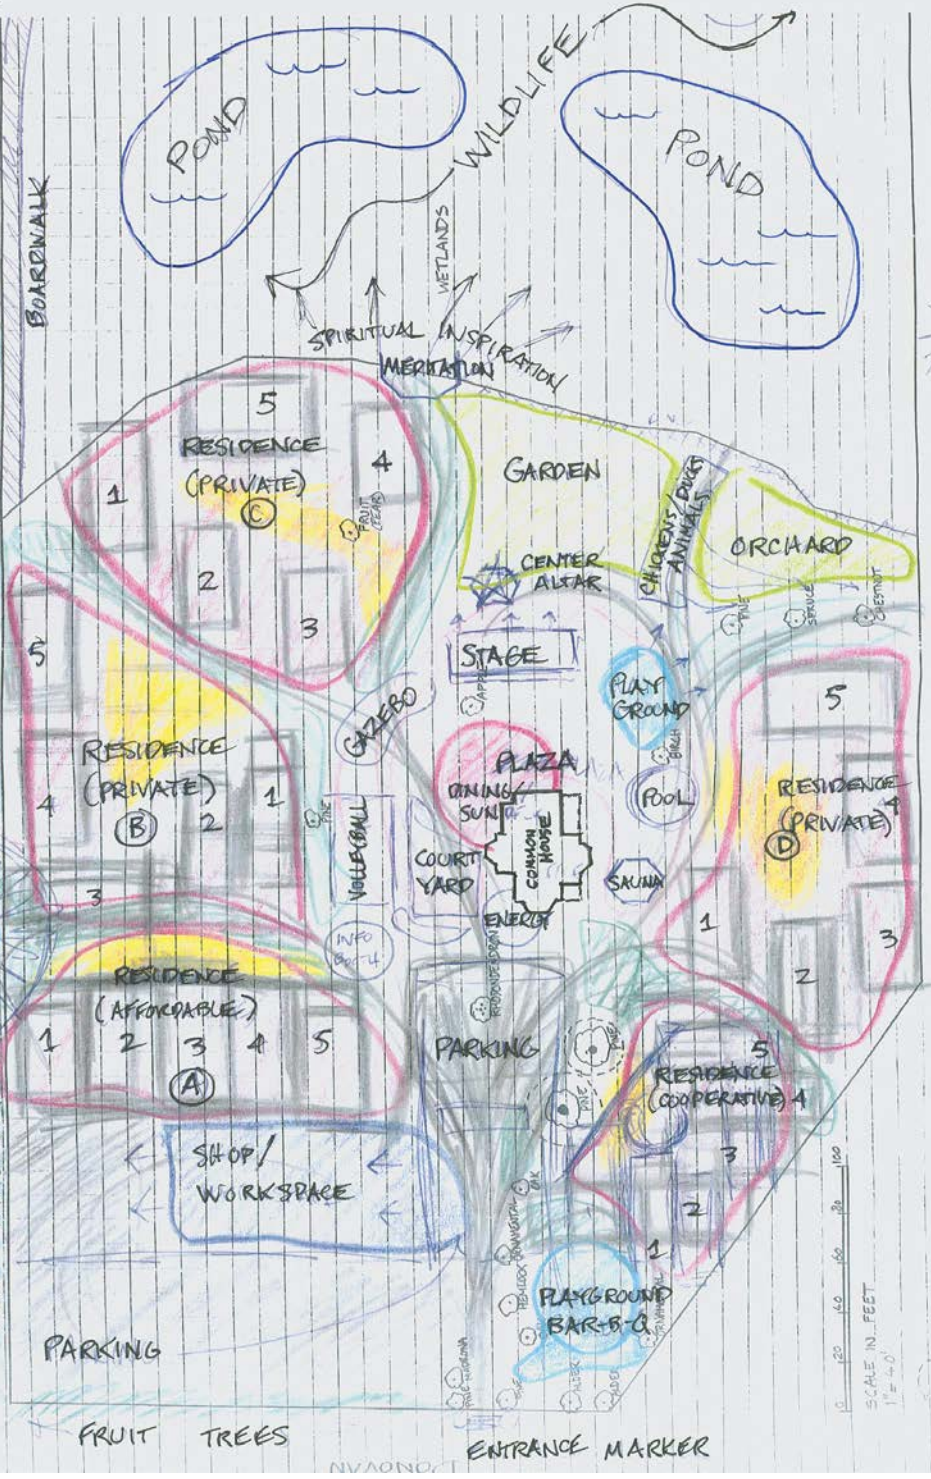 WILDLIFE
POND
POND
BOARDWALK
WETLANDS
SPIRITUAL INSPIRATION
MEDITATION
5
RESIDENCE
(PRIVATE)
C
4
1
2
3
FRUIT
(PEAR)
GARDEN
CHICKENS/DUCKS
ANIMALS
ORCHARD
CENTER
ALTAR
PINE
SPRUCE
CHESTNUT
STAGE
APPLE
PLAY
GROUND
BIRCH
GAZEBO
5
RESIDENCE
(PRIVATE)
B
4
1
2
3
PINE
VOLLEYBALL
PLAZA
DINING/
SUN
COURT
YARD
COMMON
HOUSE
ENERGY
POOL
SAUNA
5
RESIDENCE
(PRIVATE)
4
D
1
3
2
INFO
RHODODENDRON
RESIDENCE
(AFFORDABLE)
1
2
3
4
5
A
PARKING
PINE
PINE
5
RESIDENCE
(COOPERATIVE) 4
3
2
1
SHOP/
WORKSPACE
OAK
ORNAMENTAL
HEMLOCK
PLAYGROUND
BAR-B-Q
PARKING
PINE
ALDER
ALDER
100
80
60
40
20
0
SCALE IN FEET
1" = 40'
FRUIT TREES
ENTRANCE MARKER